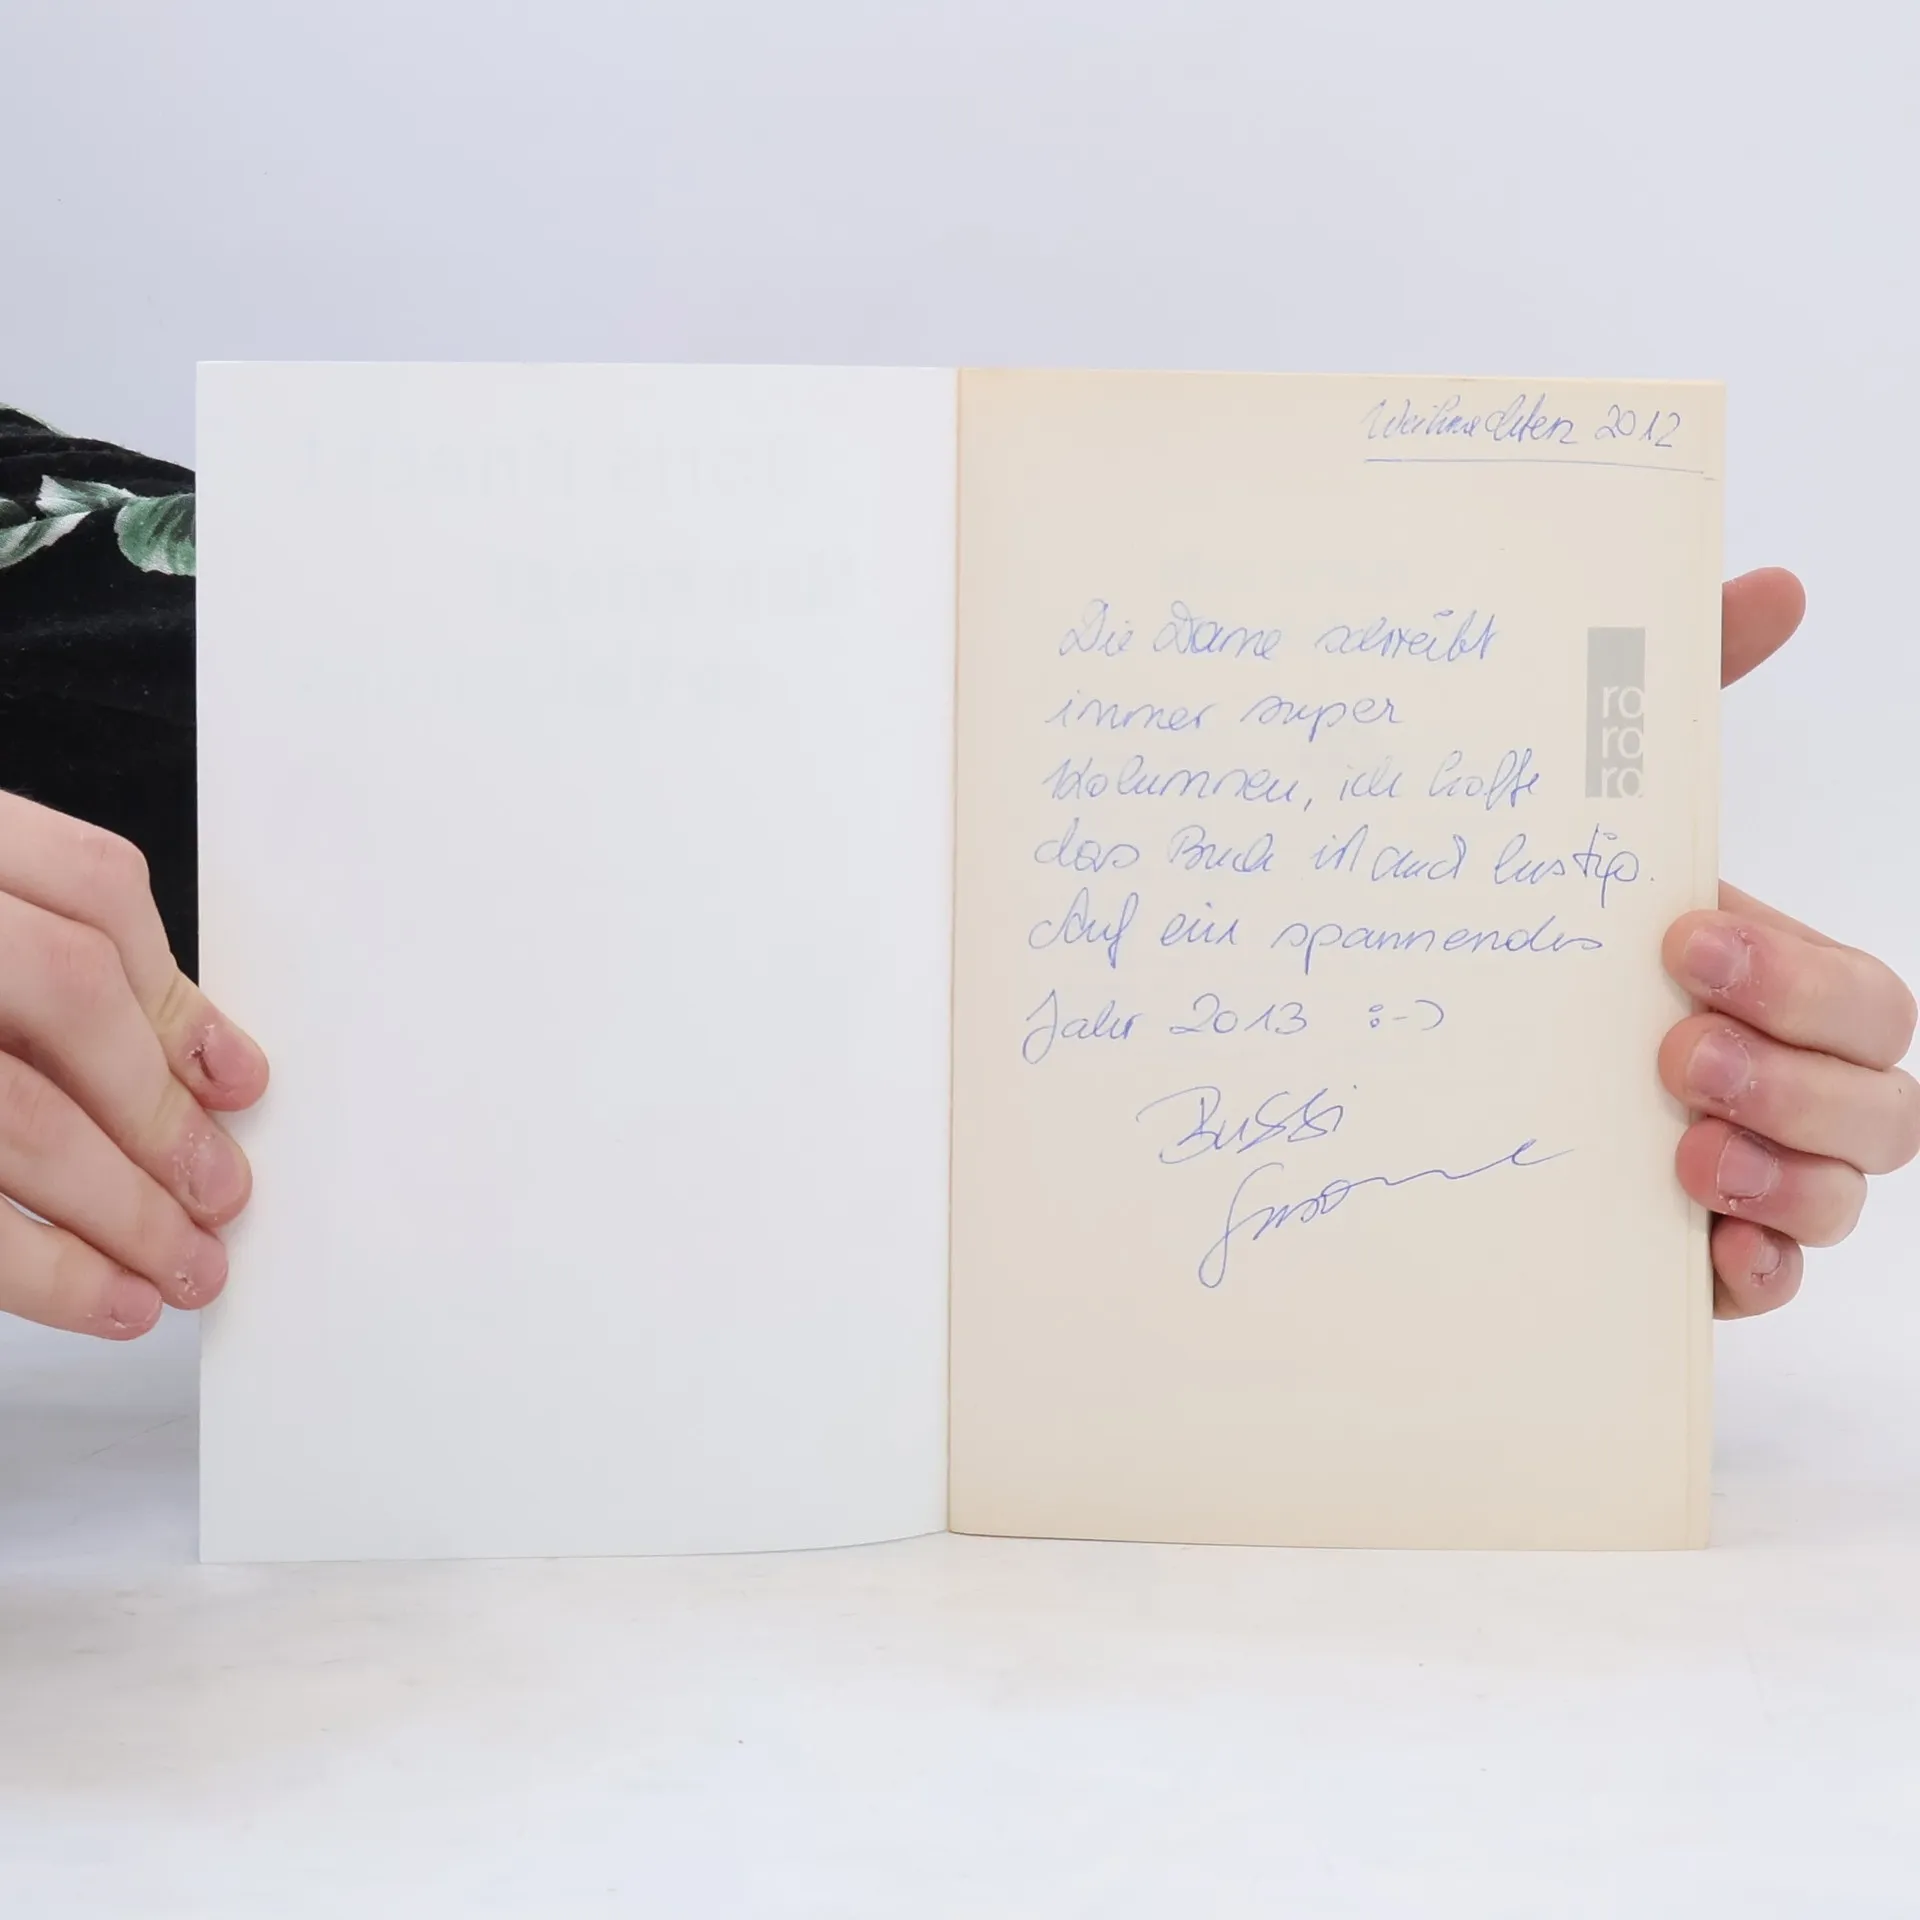 Weihnachten 2012
Die Dame schreibt
immer super
Kolumnen, ich hoffe
das Buch ist auch lustig.
Auf ein spannendes
Jahr 2013 :-)
Bussi
ro
ro
ro